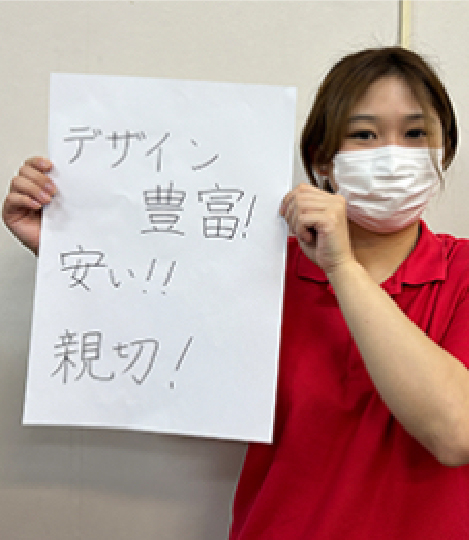 デザイン
豊富!
安い!!
親切!